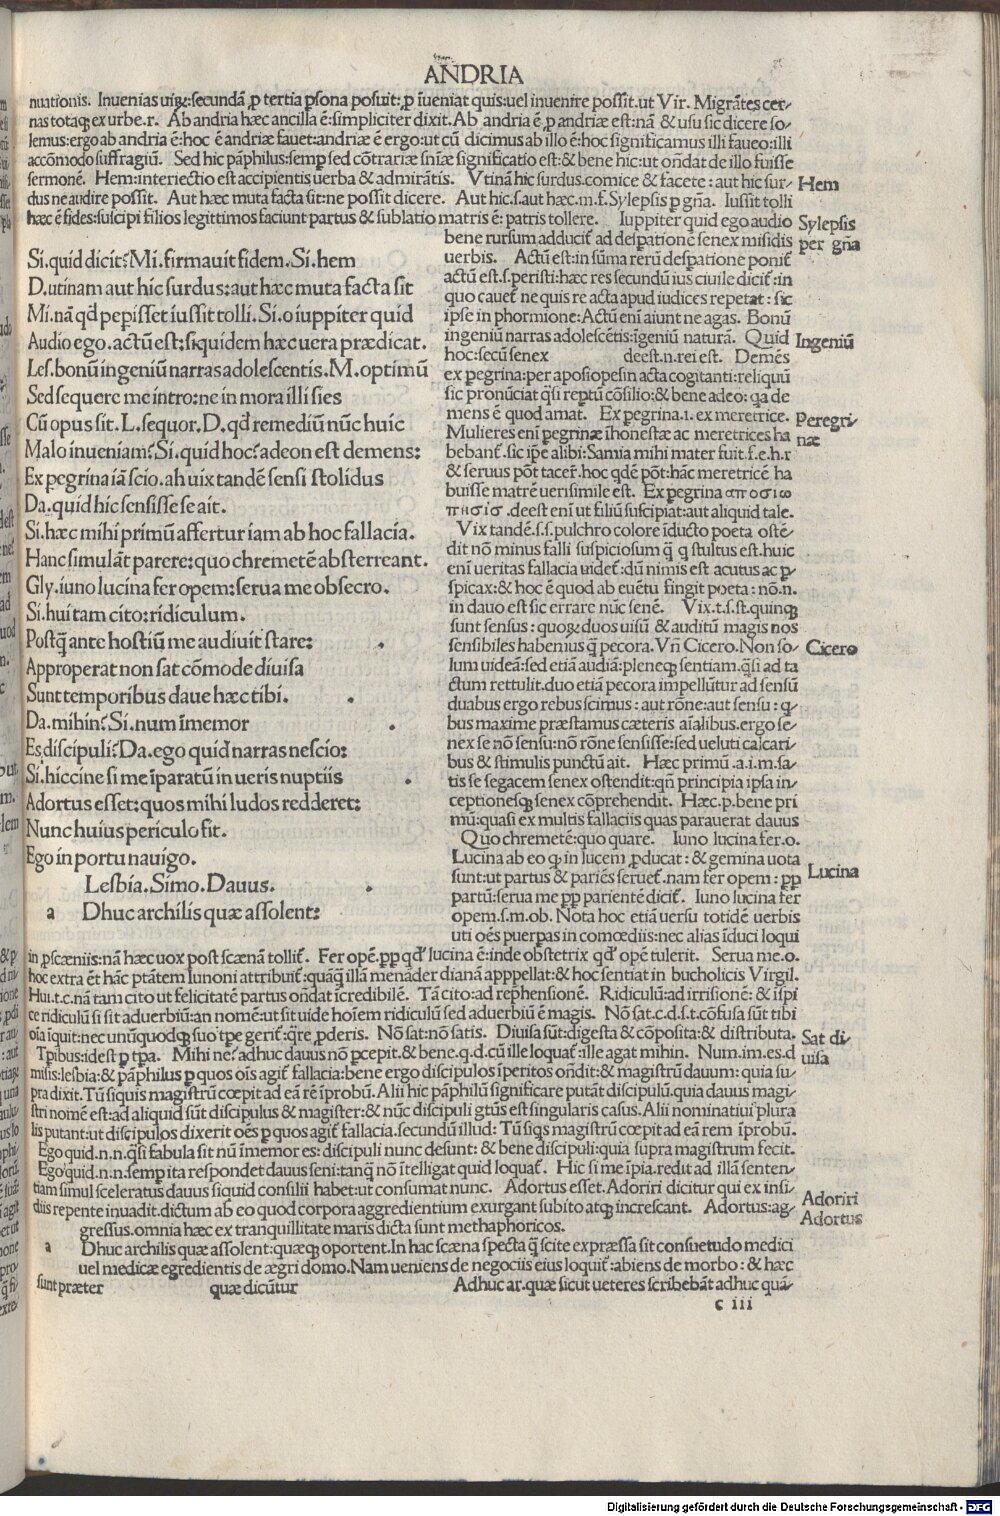 ANDRIA
nuationis. Inuenias uiqȝ: secundā ꝑ tertia ꝑsona posuit: ꝑ īueniat quis: uel inuenire possit. ut Vir. Migrātes cer-
nas totaqȝ ex urbe.r. Ab andria hæc ancilla ē: simpliciter dixit. Ab andria ē ꝑ andriæ est: nā & usu sic dicere so-
lemus: ergo ab andria ē: hoc ē andriæ fauet: andriæ ē ergo: ut cū dicimus ab illo ē: hoc significamus illi faueo: illi
accōmodo suffragiū. Sed hic pāphilus: semꝑ sed cōtrariæ sniæ significatio est: & bene hic: ut ondat de illo fuisse
sermonē. Hem: interiectio est accipientis uerba & admirātis. Vtinā hic surdus. comice & facete: aut hic sur-
dus ne audire possit. Aut hæc muta facta sit: ne possit dicere. Aut hic.s. aut hæc.m.f. Sylepsis ꝑ gña. Iussit tolli
hæc ē fides: suscipi filios legittimos faciunt partus & sublatio matris ē: patris tollere. Iuppiter quid ego audio
Hem
Sylepsis
per gña
Si. quid dicit? Mi. firmauit fidem. Si. hem
D. utinam aut hic surdus: aut hæc muta facta sit
Mi. nā qd pepisset iussit tolli. Si. o iuppiter quid
Audio ego. actū est: siquidem hæc uera prædicat.
Les. bonū ingeniū narras adolescentis. M. optimū
Sed sequere me intro: ne in mora illi sies
Cū opus sit. L. sequor. D. qd remediū nūc huic
Malo inueniam? Si. quid hoc? adeon est demens:
Ex pegrina iā scio. ah uix tandē sensi stolidus
Da. quid hic sensisse se ait.
Si. hæc mihi primū affertur iam ab hoc fallacia.
Hanc simulāt parere: quo chremetē absterreant.
Gly. iuno lucina fer opem: serua me obsecro.
Si. hui tam cito: ridiculum.
Postq̄ ante hostiū me audiuit stare:
Approperat non sat cōmode diuisa
Sunt temporibus daue hæc tibi.
Da. mihin? Si. num īmemor
Es discipuli? Da. ego quid narras nescio:
Si. hiccine si me īparatū in ueris nuptiis
Adortus esset: quos mihi ludos redderet:
Nunc huius periculo fit.
Ego in portu nauigo.
Lesbia. Simo. Dauus.
a Dhuc archilis quæ assolent:
bene rursum adducit ad despationē senex misidis
uerbis. Actū est: in sūma rerū despatione ponit
actū est.s. peristi: hæc res secundū ius ciuile dicit: in
quo cauet ne quis re acta apud iudices repetat: sic
ipse in phormione: Actū eni aiunt ne agas. Bonū
ingeniū narras adolescētis: īgeniū natura. Quid
hoc: secū senex deest.n. rei est. Demēs
ex pegrina: per aposiopesin acta cogitanti: reliquū
sic pronūciat q̄si reptū cōsilio: & bene adeo: qa de
mens ē quod amat. Ex pegrina.i. ex meretrice.
Mulieres eni pegrinæ īhonestæ ac meretrices ha
bebant. sic ipe alibi: Samia mihi mater fuit.f.e.h.r
& seruus pōt tacer. hoc qdē pōt: hāc meretricē ha
buisse matrē uerisimile est. Ex pegrina αποσιω
πησις. deest eni ut filiū suscipiat: aut aliquid tale.
Vix tandē.s.s. pulchro colore īducto poeta ostē-
dit nō minus falli suspiciosum q̄ q stultus est. huic
eni ueritas fallacia uidet: dū nimis est acutus ac ꝑ-
spicax: & hoc ē quod ab euētu fingit poeta: nō.n.
in dauo est sic errare nūc senē. Vix.t.s.st. quinqȝ
sunt sensus: quoqȝ duos uisū & auditū magis nos
sensibiles habemus q̄ pecora. Vn Cicero. Non so-
lum uideā: sed etiā audiā: pleneqȝ sentiam. q̄si ad ta
ctum rettulit. duo etiā pecora impellūtur ad sensū
duabus ergo rebus scimus: aut rōne: aut sensu: q-
bus maxime præstamus cæteris aīalibus. ergo se-
nex se nō sensu: nō rōne sensisse: sed ueluti calcari-
bus & stimulis punctū ait. Hæc primū.a.i.m. sa-
tis se segacem senex ostendit: qn principia ipsa in-
ceptionesqȝ senex cōprehendit. Hæc.p. bene pri
mū: quasi ex multis fallaciis quas parauerat dauus
Quo chremetē: quo quare. Iuno lucina fer.o.
Lucina ab eo qȝ in lucem ꝑducat: & gemina uota
sunt: ut partus & pariēs seruet. nam fer opem: ꝓp
partū: serua me ꝓp parientē dicit. Iuno lucina fer
opem.s.m.ob. Nota hoc etiā uersu totidē uerbis
uti oēs puerpas in comœdiis: nec alias īduci loqui
Ingeniū
Peregri-
næ
Cicero
Lucina
in ꝓscæniis: nā hæc uox post scænā tollit. Fer opē. ꝓp qd lucina ē: inde obstetrix qd opē tulerit. Serua me.o.
hoc extra ēt hāc ptātem Iunoni attribuit: quāq̄ illā menāder dianā apppellat: & hoc sentiat in bucholicis Virgil.
Hui.t.c. nā tam cito ut felicitatē partus ondat īcredibilē. Tā cito: ad rephensionē. Ridiculū: ad irrisionē: & ispi
ce ridiculū si sit aduerbiū: an nomē: ut sit uide hoiem ridiculū sed aduerbiū ē magis. Nō sat.c.d.s.t. cōfusa sūt tibi
oia īquit: nec unūquodqȝ suo tpe gerit: qre ꝑderis. Nō sat: nō satis. Diuisa sūt: digesta & cōposita: & distributa.
Tpibus: idest ꝑ tpa. Mihi ne? adhuc dauus nō ꝑcepit. & bene.q.d. cū ille loquat: ille agat mihin. Num.im.es.d
misis: lesbia: & pāphilus ꝑ quos ois agit fallacia: bene ergo discipulos īperitos ondit: & magistrū dauum: quia su-
pra dixit. Tū siquis magistrū cœpit ad eā rē īprobū. Alii hic pāphilū significare putāt discipulū. quia dauus magi-
stri nomē est: ad aliquid sūt discipulus & magister: & nūc discipuli gtūs est singularis casus. Alii nominatiui plura
lis putant: ut discipulos dixerit oēs ꝑ quos agit fallacia. secundū illud: Tū siqs magistrū cœpit ad eā rem īprobū.
Ego quid.n.n. q̄si fabula sit nū īmemor es: discipuli nunc desunt: & bene discipuli: quia supra magistrum fecit.
Ego quid.n.n. semp ita respondet dauus seni: tanq̄ nō ītelligat quid loquat. Hic si me īpia. redit ad illā senten-
tiam simul sceleratus dauus siquid consilii habet: ut consumat nunc. Adortus esset. Adoriri dicitur qui ex insi-
diis repente inuadit. dictum ab eo quod corpora aggredientium exurgant subito atqȝ increscant. Adortus: ag-
gressus. omnia hæc ex tranquillitate maris dicta sunt methaphoricos.
a Dhuc archilis quæ assolent: quæqȝ oportent. In hac scæna specta q̄ scite expræssa sit consuetudo medici
uel medicæ egredientis de ægri domo. Nam ueniens de negociis eius loquit: abiens de morbo: & hæc
sunt præter quæ dicūtur Adhuc ar. quæ sicut ueteres scribebāt adhuc quā-
Sat di-
uisa
Adoriri
Adortus
c iii
Digitalisierung gefördert durch die Deutsche Forschungsgemeinschaft - DFG